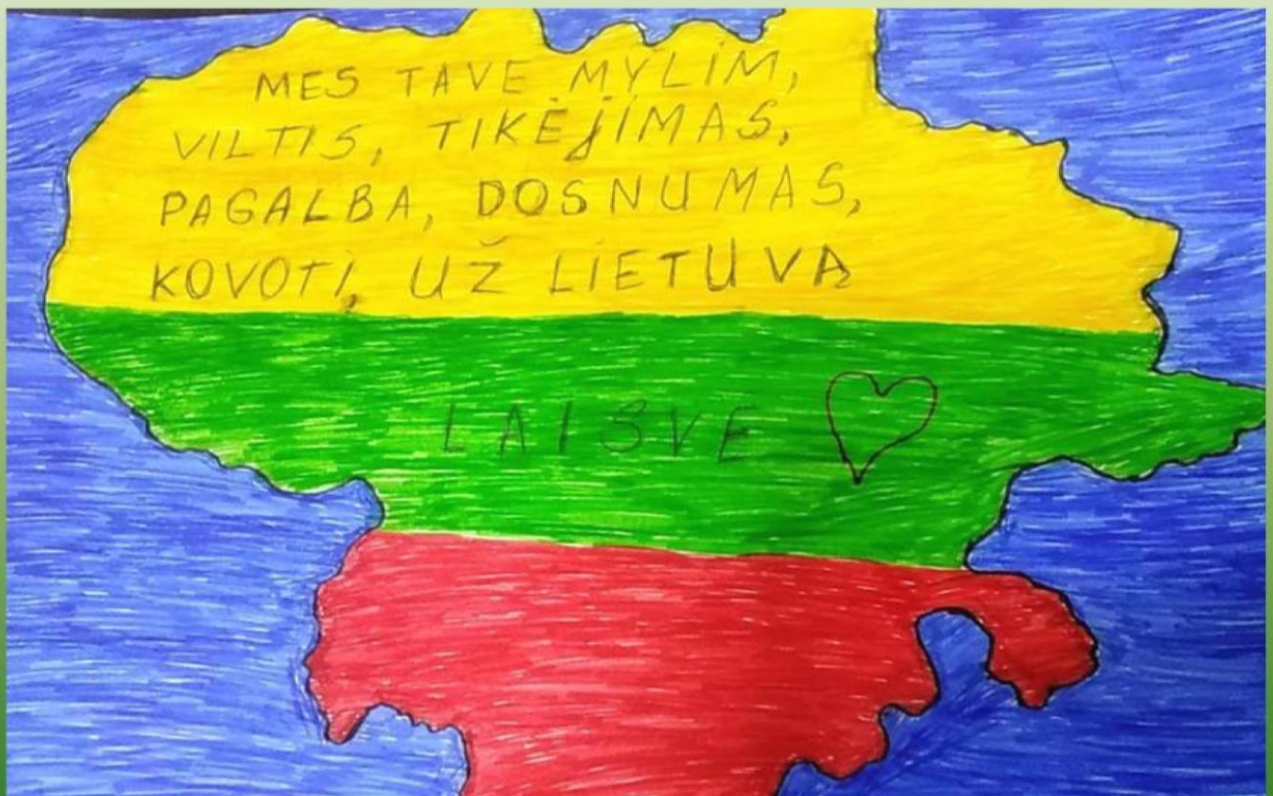 MES TAVE MYLIM,
VILTIS, TIKĖjIMAS,
PAGALBA, DOSNUMAS,
KOVOTI, UŽ LIETUVĄ
LAISVE